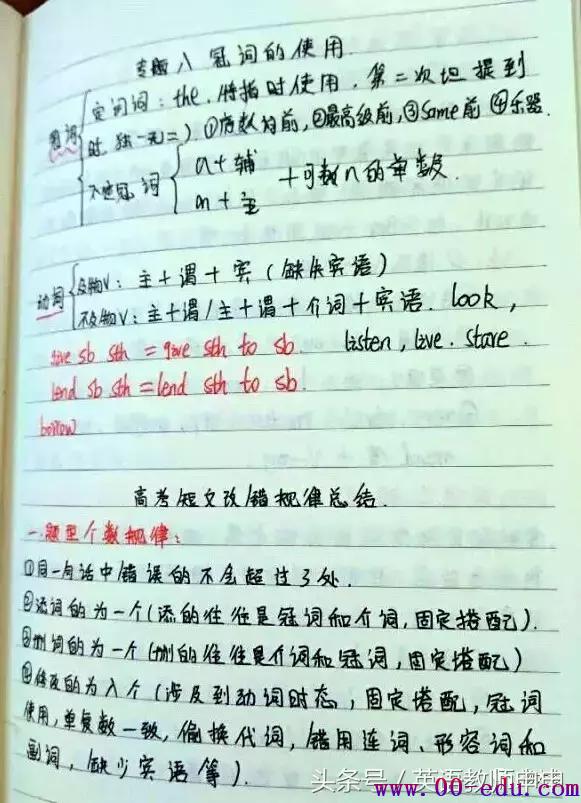 专题八 冠词的使用.
冠词 定冠词：the. 特指时使用. 第二次坦提到
时. 独一无二) ①序数词前, ②最高级前, ③Same前 ④乐器.
不定冠词 a+辅
an+主
+可数n的单数.
动词 及物V：主+谓+宾(缺失宾语)
不及物V：主+谓/主+谓+介词+宾语. look,
give sb sth = give sth to sb. listen, live. stare.
lend sb sth = lend sth to sb.
borrow
高考短文改错规律总结.
一.题型个数规律：
①同一句话中错误的不会超过3处.
②添词的为一个(添的往往是冠词和介词,固定搭配).
③删词的为一个(删的往往是介词和冠词,固定搭配)
④修改的为八个(涉及到动词时态,固定搭配,冠词
使用,单复数一致,偷换代词,错用连词、形容词和
副词,缺少宾语等).
头条号/英语教师申申
www.00-edu.com